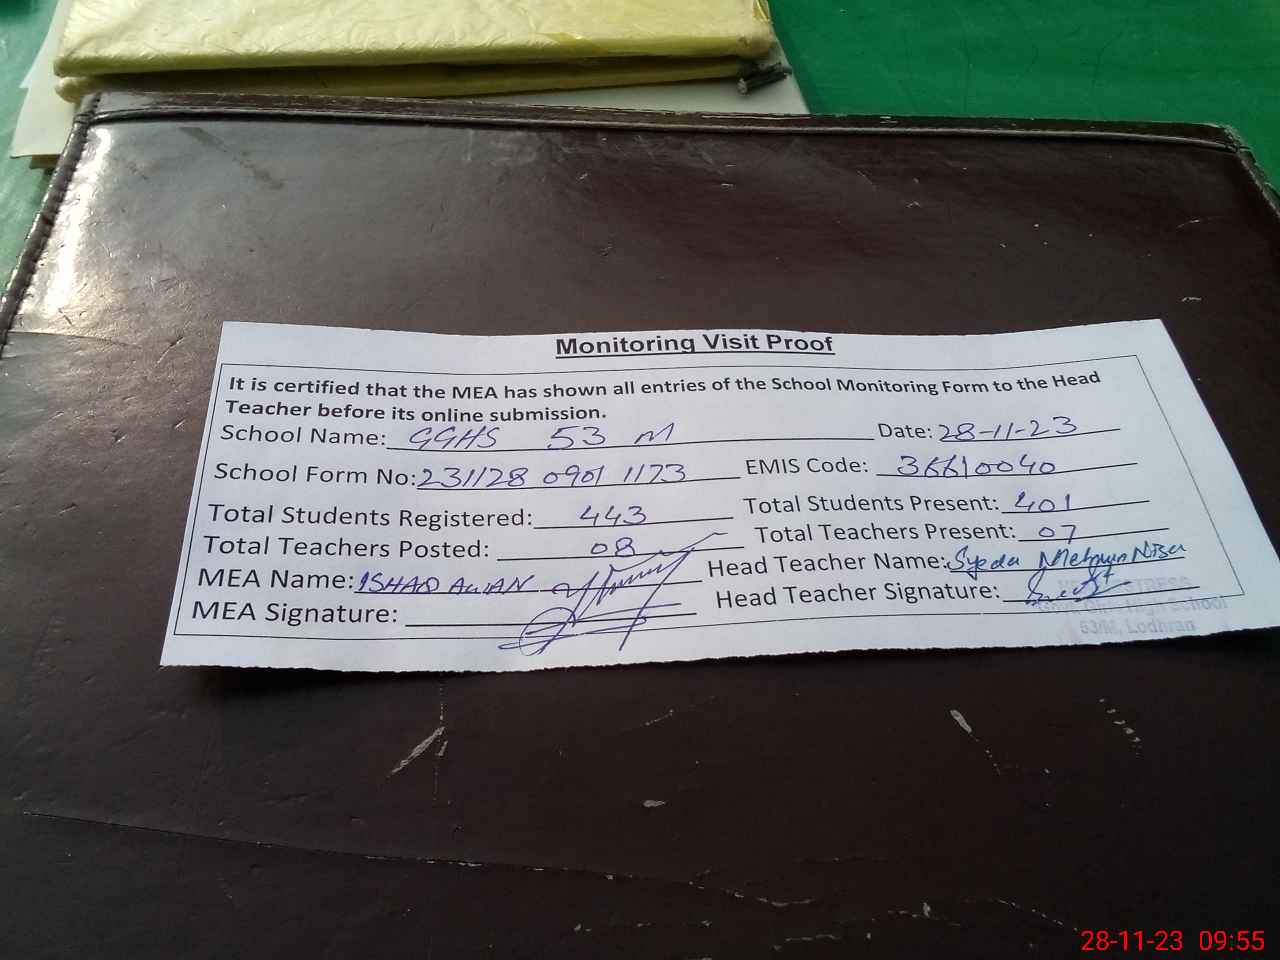 Monitoring Visit Proof
It is certified that the MEA has shown all entries of the School Monitoring Form to the Head
Teacher before its online submission.
School Name: GGHS 53 M Date: 28-11-23
School Form No: 231128 0901 1173 EMIS Code: 36610040
Total Students Registered: 443 Total Students Present: 401
Total Teachers Posted: 08 Total Teachers Present: 07
MEA Name: Head Teacher Name: Syeda
MEA Signature: Head Teacher Signature:
High School
53/M, Lodhran
28-11-23 09:55